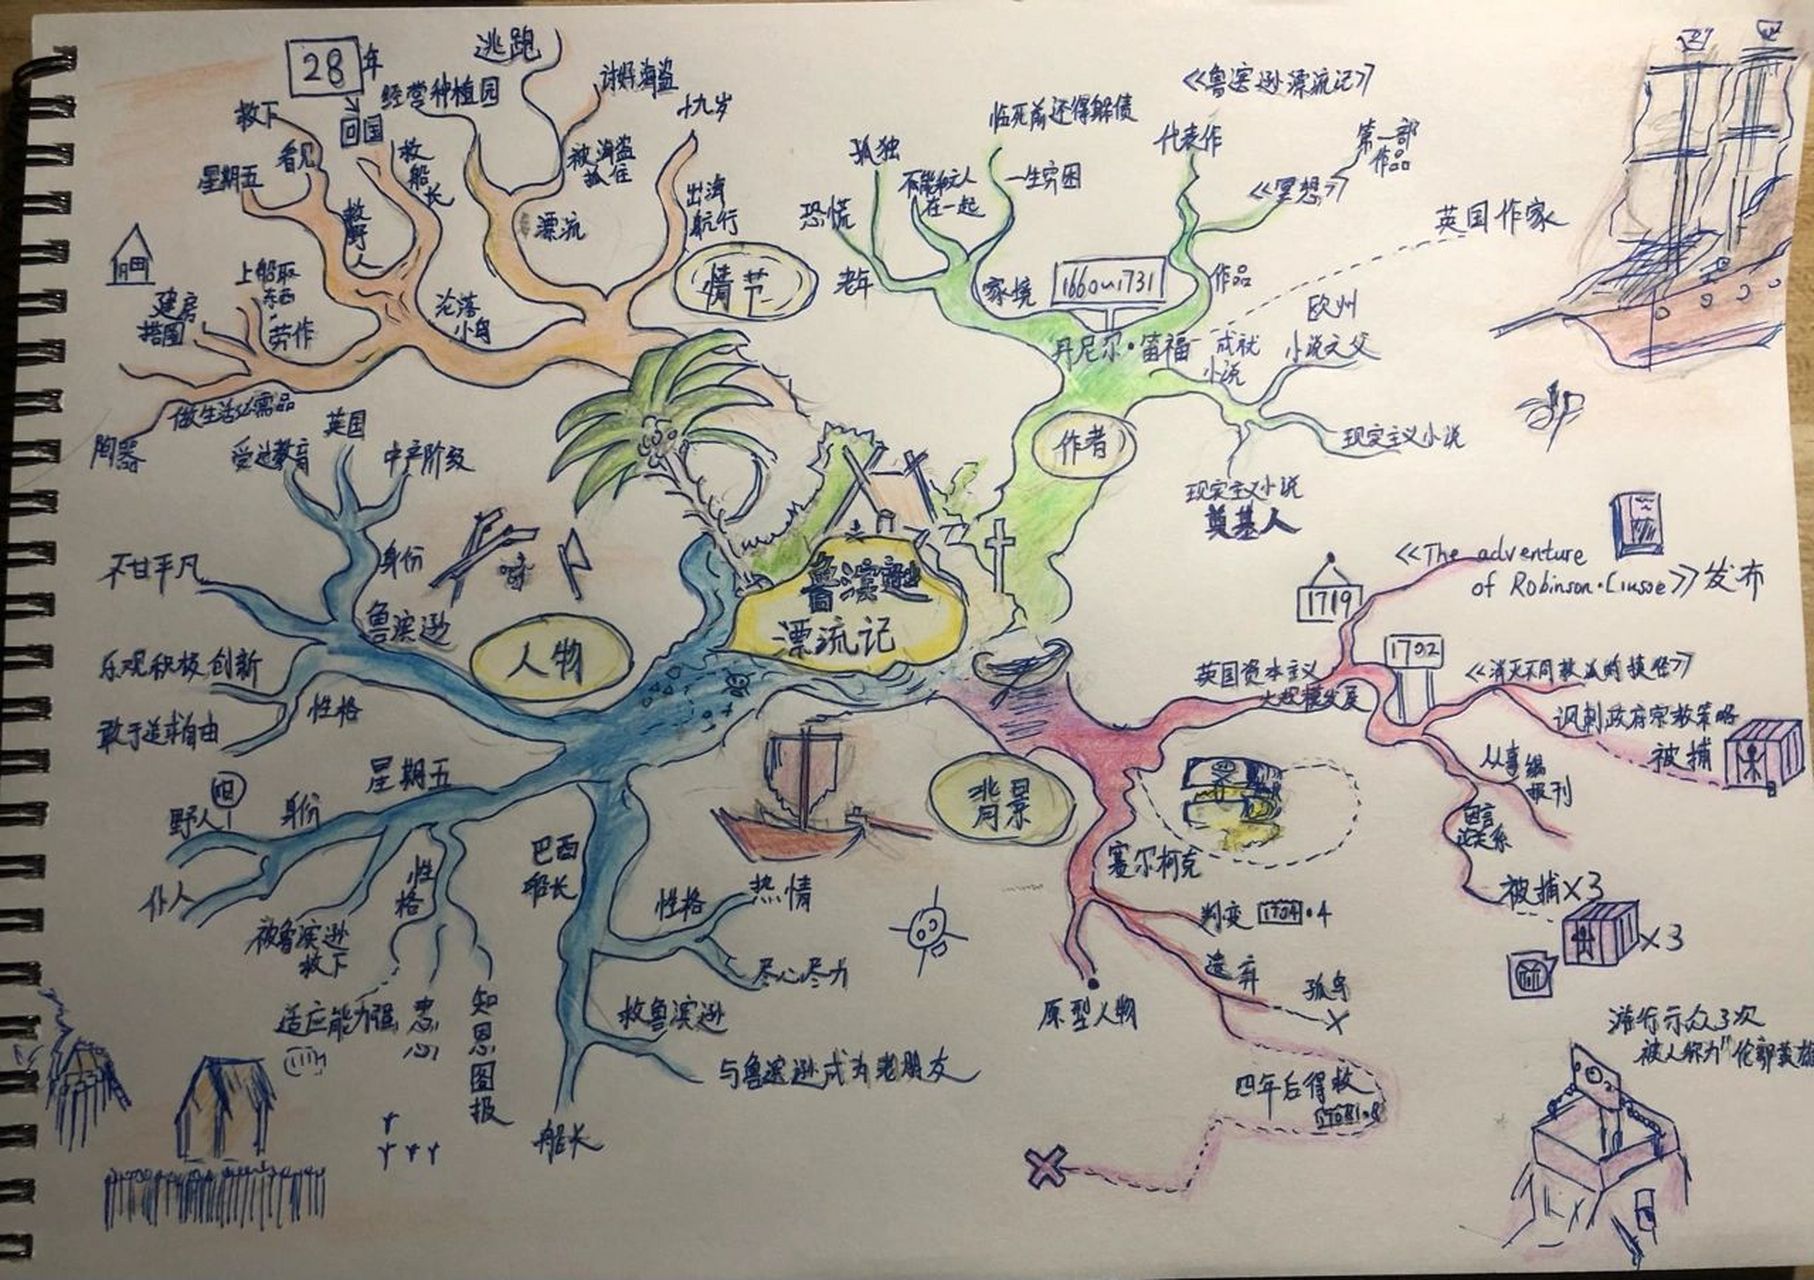 鲁滨逊
漂流记
情节
十九岁
出海
航行
漂流
被海盗
抓住
讨好海盗
逃跑
经营种植园
沦落
小岛
28年
回国
救船长
救野人
看见
救下
星期五
劳作
上船取
东西
建房
搭围
做生活必需品
陶器
作者
丹尼尔·笛福
1660~1731
英国作家
老年
恐慌
孤独
不能和家人
在一起
家境
一生穷困
临死前还得躲债
作品
代表作
《鲁滨逊漂流记》
《冥想》
第一部
作品
成就
小说
欧州
小说之父
现实主义小说
现实主义小说
奠基人
人物
鲁滨逊
身份
受过教育
英国
中产阶级
不甘平凡
性格
乐观积极 创新
敢于追求自由
星期五
身份
野人
仆人
被鲁滨逊
救下
性格
适应能力强
忠心
知恩图报
巴西
船长
性格
热情
尽心尽力
救鲁滨逊
与鲁滨逊成为老朋友
船长
背景
英国资本主义
大规模发展
1719
《The adventure
of Robinson·Ciusoe》发布
1702
《消灭不同教派的捷径》
讽刺政府宗教策略
被捕
从事编
报刊
因言
论关系
被捕×3
×3
游行示众3次
被人称为"伦敦英雄
塞尔柯克
原型人物
判变 1704·4
遗弃
孤岛
四年后得救